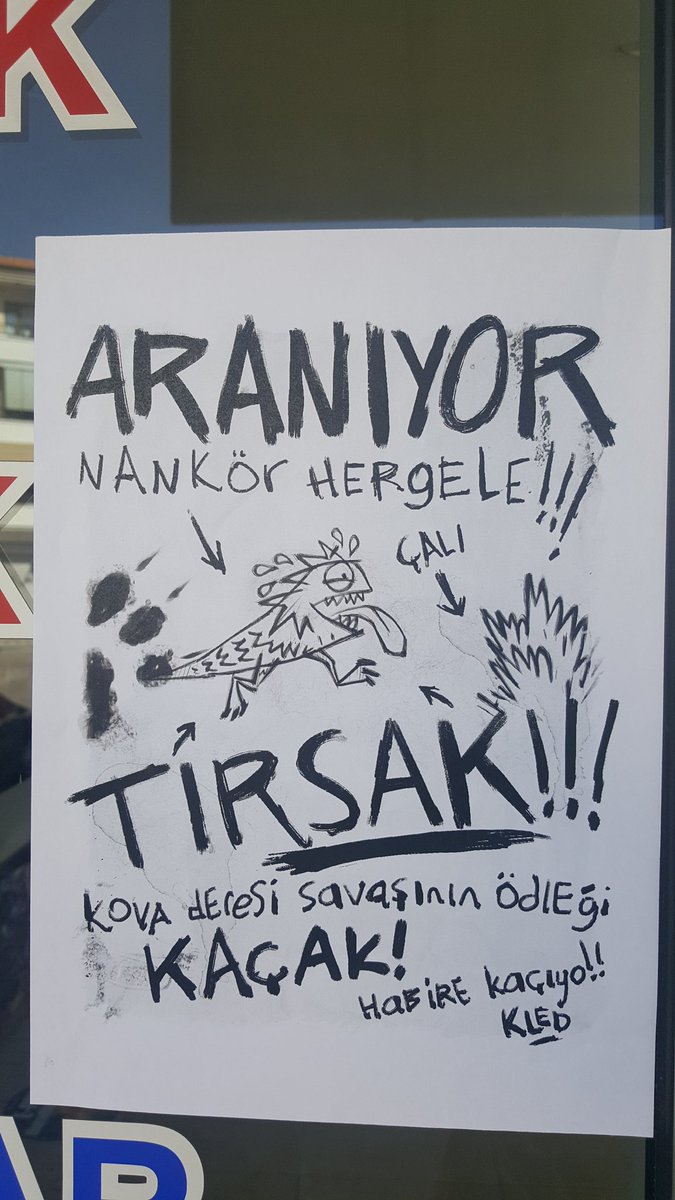 K
ARANIYOR
NANKÖr HERgELE!!!
ÇALI
K
TİRSAK!!!
KOVA dEresi savaşının ÖdlEği
KAÇAK!
HaBİRE kaçıyo!!
KLED
AR